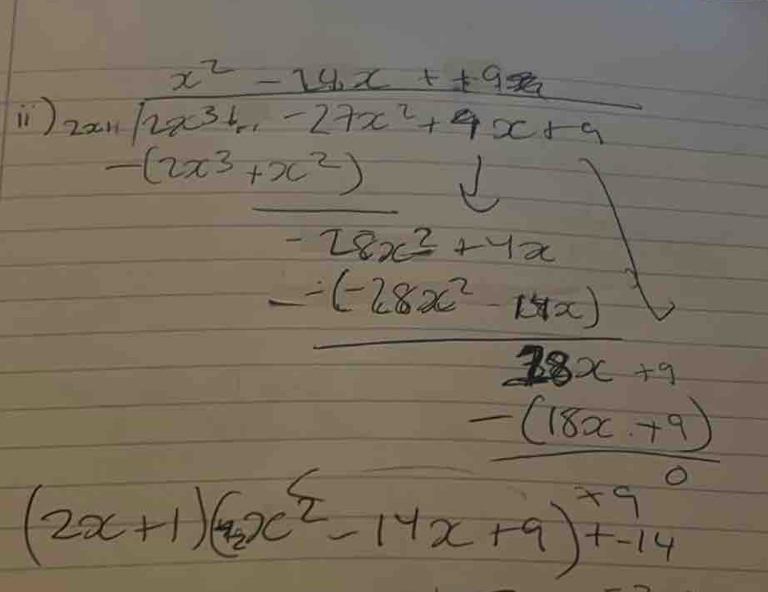 x² - 14x + 9
ii) 2x+1 2x³ - 27x² + 4x + 9
-(2x³ + x²)
- 28x² + 4x
- (-28x² - 14x)
18x + 9
- (18x + 9)
0
(2x+1)(x² - 14x + 9) ×9
+-14